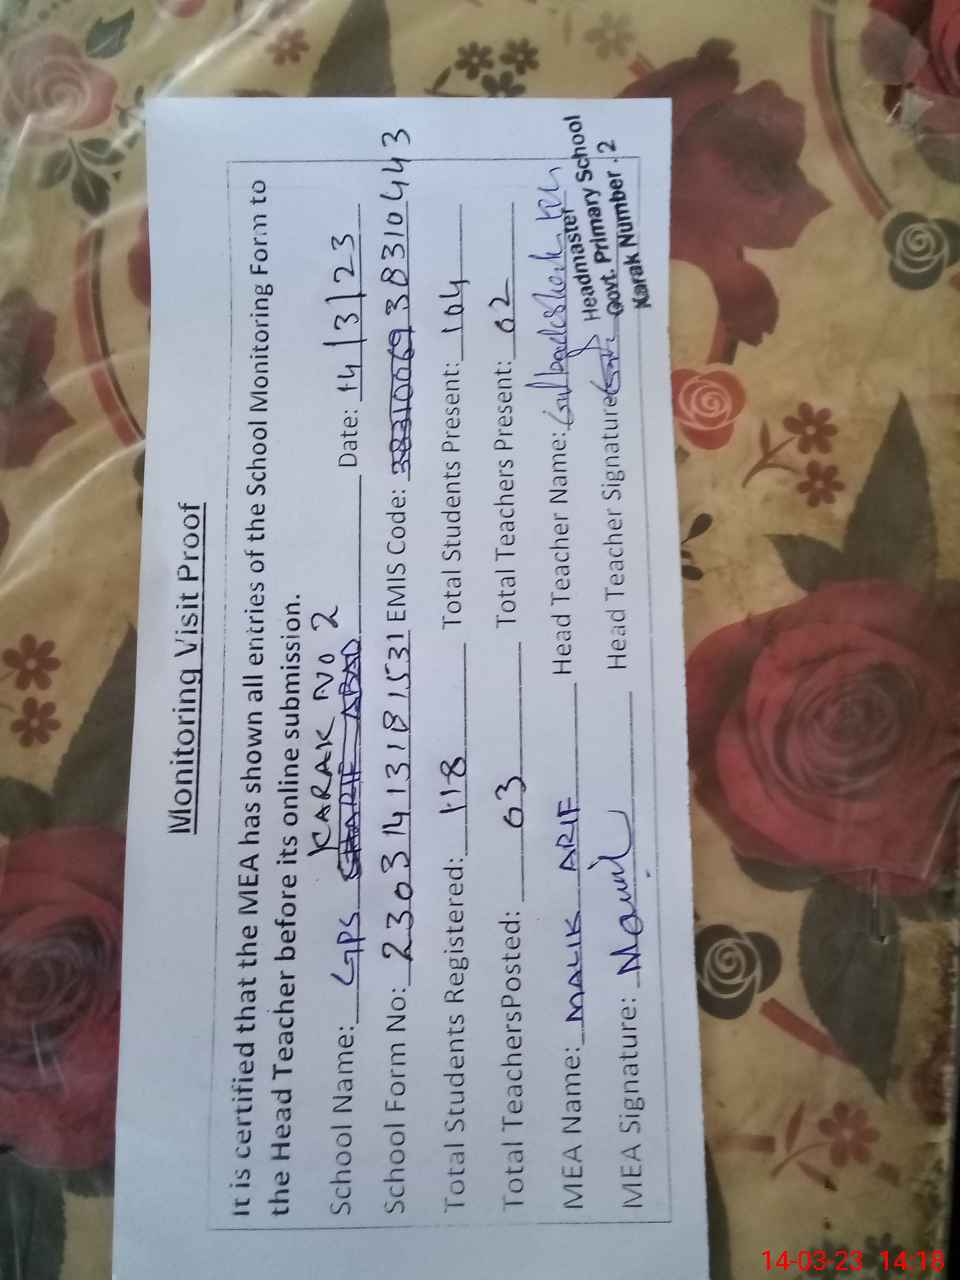 Monitoring Visit Proof
It is certified that the MEA has shown all entries of the School Monitoring Form to
the Head Teacher before its online submission.
School Name: GPS SHARIF ABAD KARAK NO 2 Date: 14/3/23
School Form No: 23031413181531 EMIS Code: 38310069 38310443
Total Students Registered: 118 Total Students Present: 104
Total TeachersPosted: 03 Total Teachers Present: 02
MEA Name: MALIK ARIF Head Teacher Name:
MEA Signature: Head Teacher Signature
Headmaster
Govt. Primary School
Karak Number . 2
14-03-23 14:18